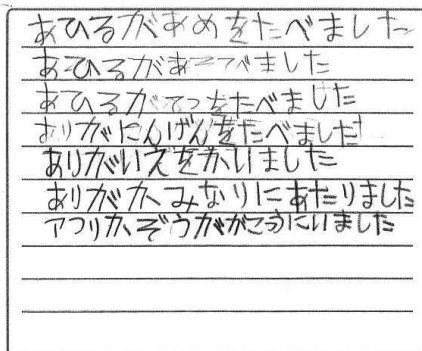 あひるがあめをたべました
あひるがあそべました
あひるがてつをたべました
ありがにんげんをたべました
ありがいえをかいました
ありがかみなりにあたりました
アフリカぞうががっこうにいました